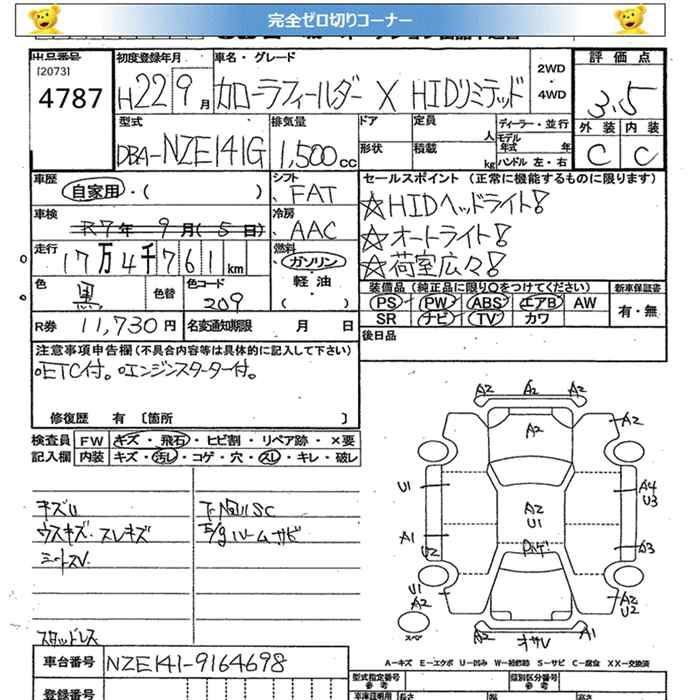 完全ゼロ切りコーナー
出品番号
[2073]
4787
初度登録年月
H22 9月
車名・グレード
カローラフィールダー X HIDリミテッド
2WD
・
4WD
評価点
3.5
外装 内装
C C
型式
DBA-NZE141G
排気量
1,500cc
ドア
形状
定員
人
積載
kg
ディーラー・並行
モデル年式 年
ハンドル 左・右
車歴
自家用・( )
シフト
FAT
車検
R7年 9月(5日)
冷房
AAC
走行
17万4千761km
燃料
ガソリン
・
軽油
・
( )
色
黒
色替
色コード
209
R券 11,730円
名変通知期限 月 日
セールスポイント (正常に機能するものに限ります)
☆HIDヘッドライト!
☆オートライト!
☆荷室広々!
装備品 (純正品に限り○をつけてください)
PS PW ABS エアB AW
SR ナビ TV カワ
新車保証書
有・無
後日品
注意事項申告欄(不具合内容等は具体的に記入して下さい)
○ETC付。○エンジンスターター付。
修復歴 有 〔箇所 〕
検査員記入欄
FW キズ・飛石・ヒビ割・リペア跡・×要
内装 キズ・汚レ・コゲ・穴・スレ・キレ・破レ
キズU
ウスキズ・スレキズ
シートスレ
スタッドレス
E/gルームサビ
A2 A2 A2
A2
A2
U1
A4
U3
A2
U1
A1
U2
A3
U1
A2
A2
U2
スペア
A2
A1
A-キズ E-エクボ U-凹み W-補修跡 S-サビ C-腐食 XX-交換済
車台番号
NZE141-9164698
登録番号
型式指定番号
参考
類別区分番号
参考
車庫証明用
参考
長さ
幅
高さ